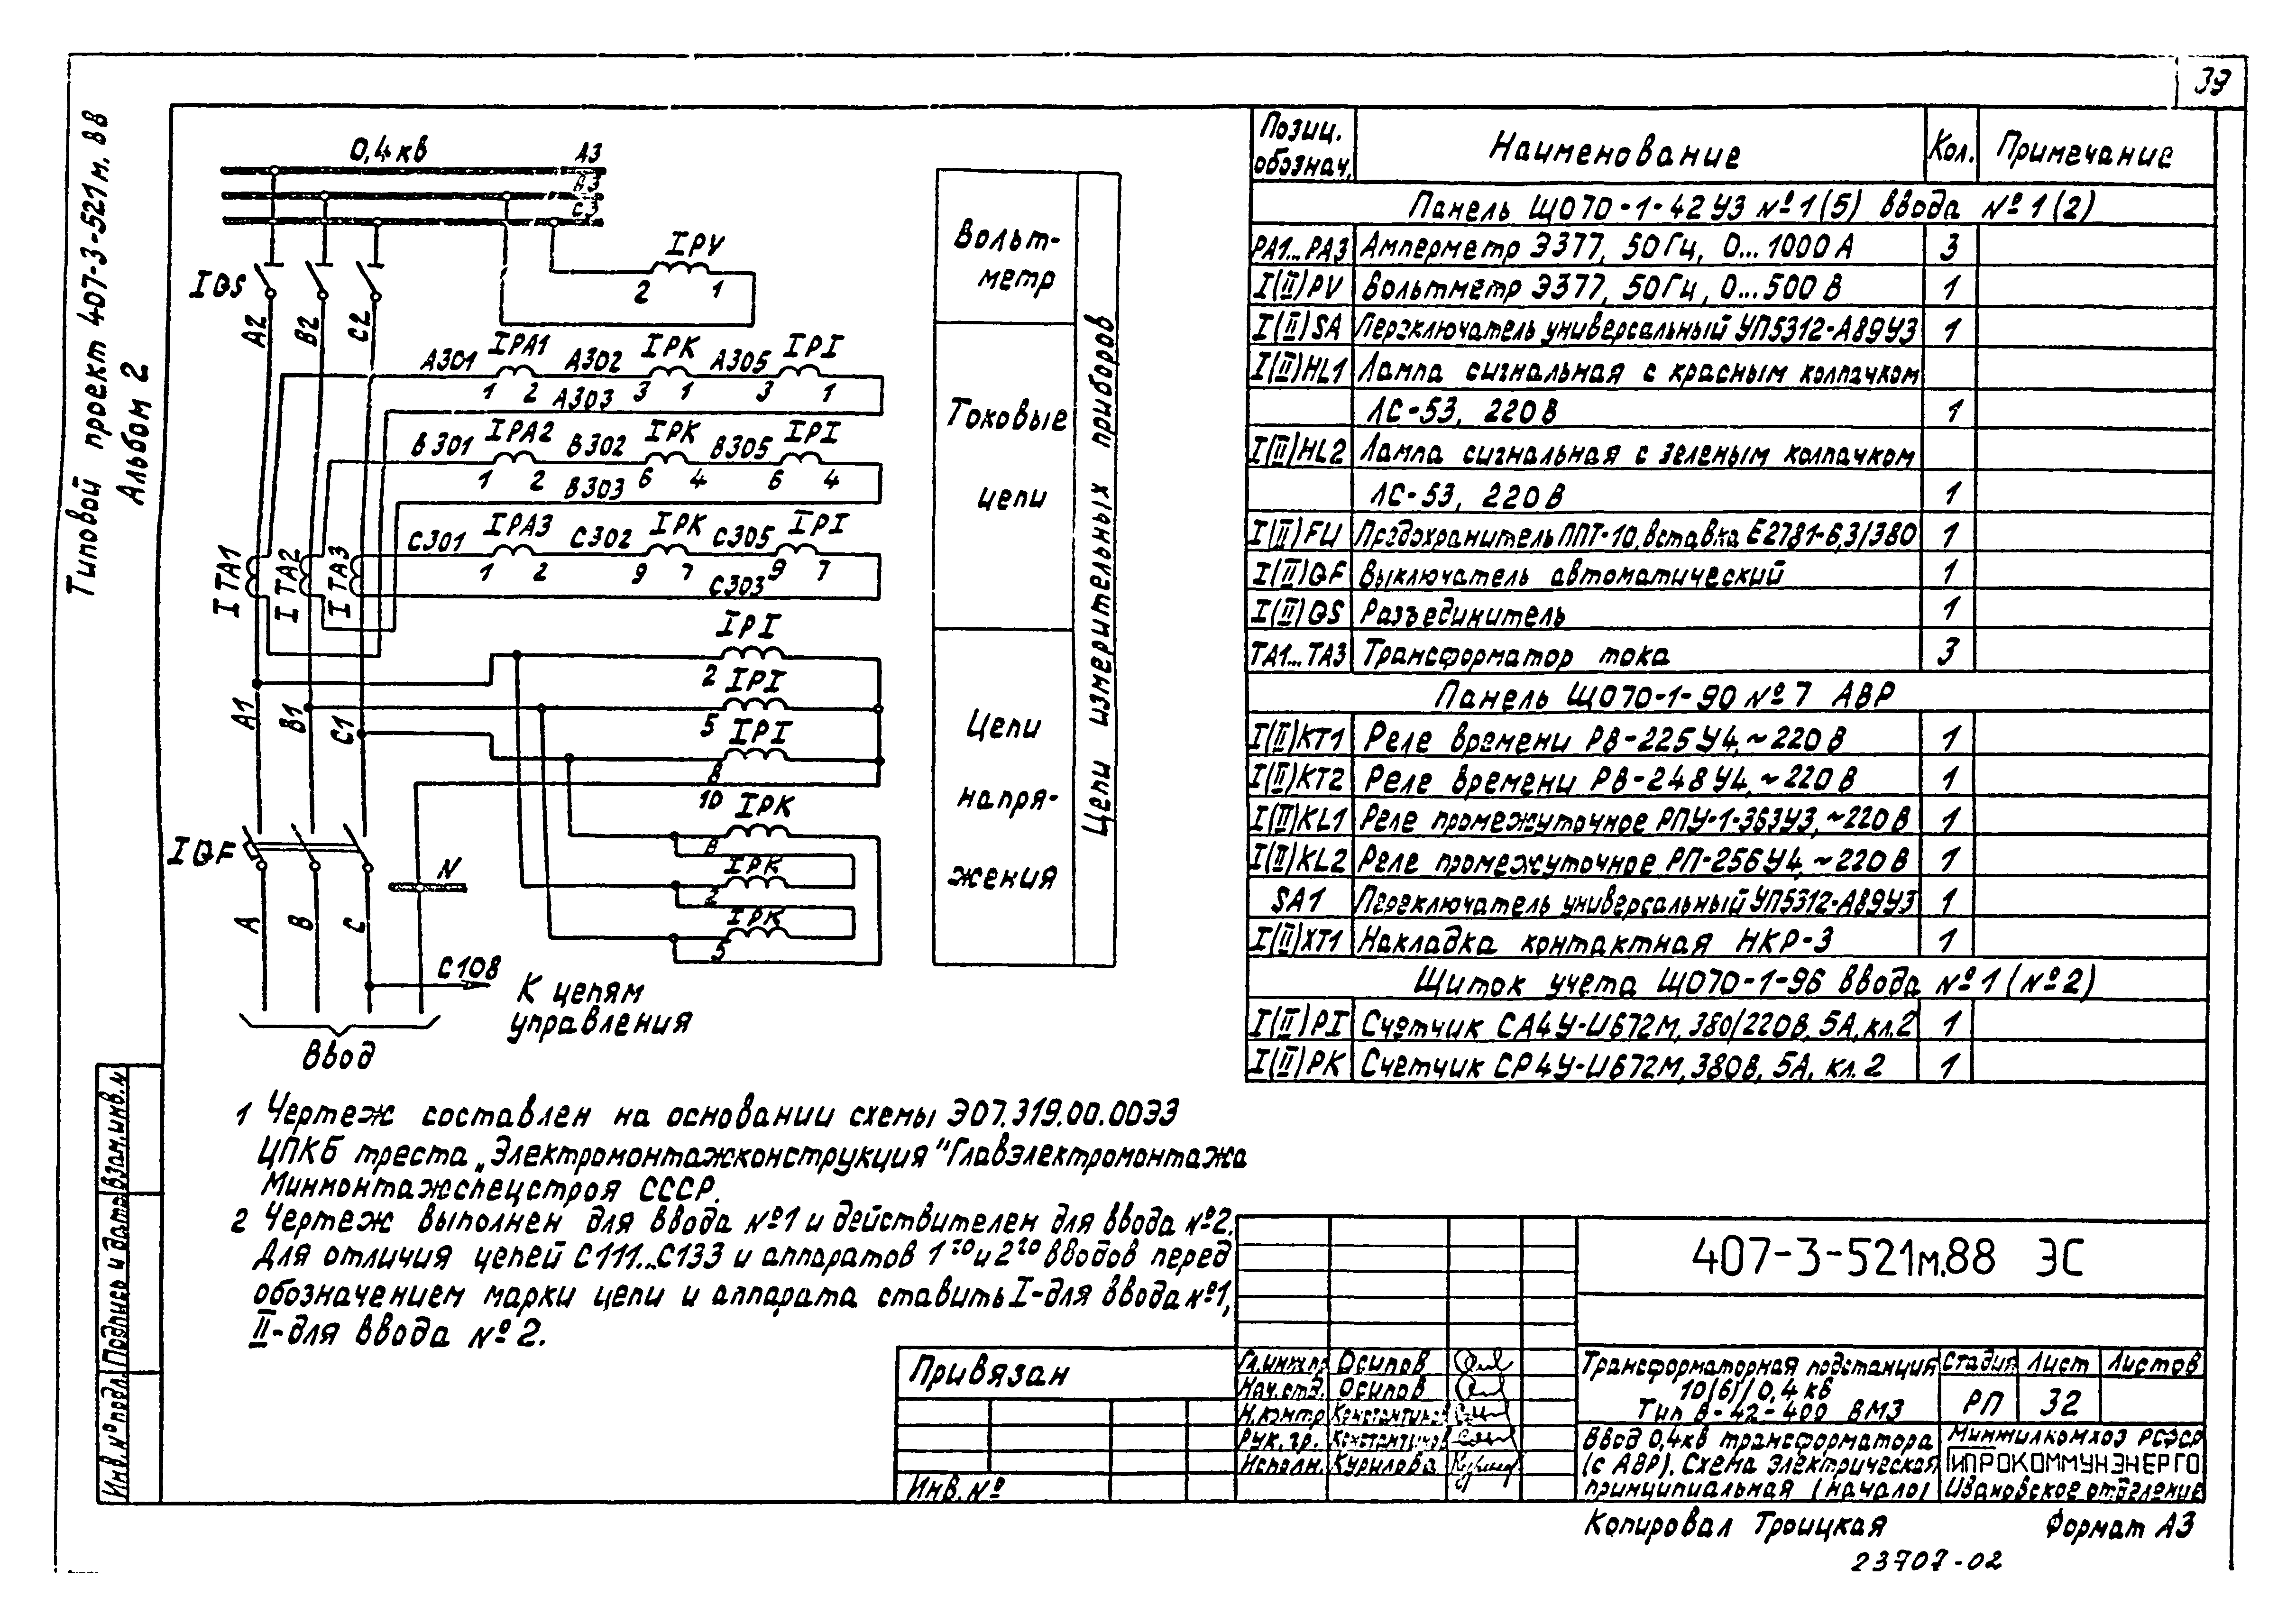 39
Типовой проект 407-3-521м.88
Альбом 2
0,4кв
А3
В3
С3
IPV
2 1
IQS
А2 В2 С2
А301 IPA1 А302 IPK А305 IPI
1 2 А303 3 1 3 1
В301 IPA2 В302 IPK В305 IPI
1 2 В303 6 4 6 4
С301 IPA3 С302 IPK С305 IPI
1 2 9 7 С303 9 7
I TA1 I TA2 I TA3
IPI
2 IPI
5 IPI
8
10 IPK
8
IPK
2
IPK
5
А1 В1 С1
IQF
N
А В С
С108
К цепям
управления
Ввод
Вольт-
метр
Токовые
цепи
Цепи
напря-
жения
Цепи измерительных приборов
Позиц. обознач. Наименование Кол. Примечание
Панель ЩО70-1-42У3 №1(5) ввода №1(2)
РА1...РА3 Амперметр Э377, 50Гц, 0...1000А 3
I(II)PV Вольтметр Э377, 50Гц, 0...500В 1
I(II)SA Переключатель универсальный УП5312-А89У3 1
I(II)HL1 Лампа сигнальная с красным колпачком
ЛС-53, 220В 1
I(II)HL2 Лампа сигнальная с зеленым колпачком
ЛС-53, 220В 1
I(II)FU Предохранитель ППТ-10, вставка Е2781-6,3/380 1
I(II)QF Выключатель автоматический 1
I(II)QS Разъединитель 1
ТА1...ТА3 Трансформатор тока 3
Панель ЩО70-1-90 №7 АВР
I(II)KT1 Реле времени РВ-225У4, ~220В 1
I(II)KT2 Реле времени РВ-248У4, ~220В 1
I(II)KL1 Реле промежуточное РПУ-1-363У3, ~220В 1
I(II)KL2 Реле промежуточное РП-256У4, ~220В 1
SA1 Переключатель универсальный УП5312-А89У3 1
I(II)XT1 Накладка контактная НКР-3 1
Щиток учета ЩО70-1-96 ввода №1 (№2)
I(II)PI Счетчик СА4У-И672М, 380/220В, 5А, кл.2 1
I(II)PK Счетчик СР4У-И672М, 380В, 5А, кл.2 1
1 Чертеж составлен на основании схемы Э07.319.00.00Э3
ЦПКБ треста „Электромонтажконструкция" Главэлектромонтажа
Минмонтажспецстроя СССР.
2 Чертеж выполнен для ввода №1 и действителен для ввода №2.
Для отличия цепей С111...С133 и аппаратов 1го и 2го вводов перед
обозначением марки цепи и аппарата ставить I-для ввода №1,
II-для ввода №2.
Инв.№ подл. Подпись и дата Взам.инв.№
Привязан
Инв.№
407-3-521м.88 ЭС
Гл.инж.пр. Осипов
Нач.отд. Осипов
Н.контр. Константинов
Рук.гр. Константинов
Исполн. Курилова
Трансформаторная подстанция
10(6)/0,4 кв
Тип В-42-400 ВМ3
Стадия Лист Листов
РП 32
Ввод 0,4кв трансформатора
(с АВР). Схема электрическая
принципиальная (начало)
Минжилкомхоз РСФСР
ГИПРОКОММУНЭНЕРГО
Ивановское отделение
Копировал Троицкая Формат А3
23707-02